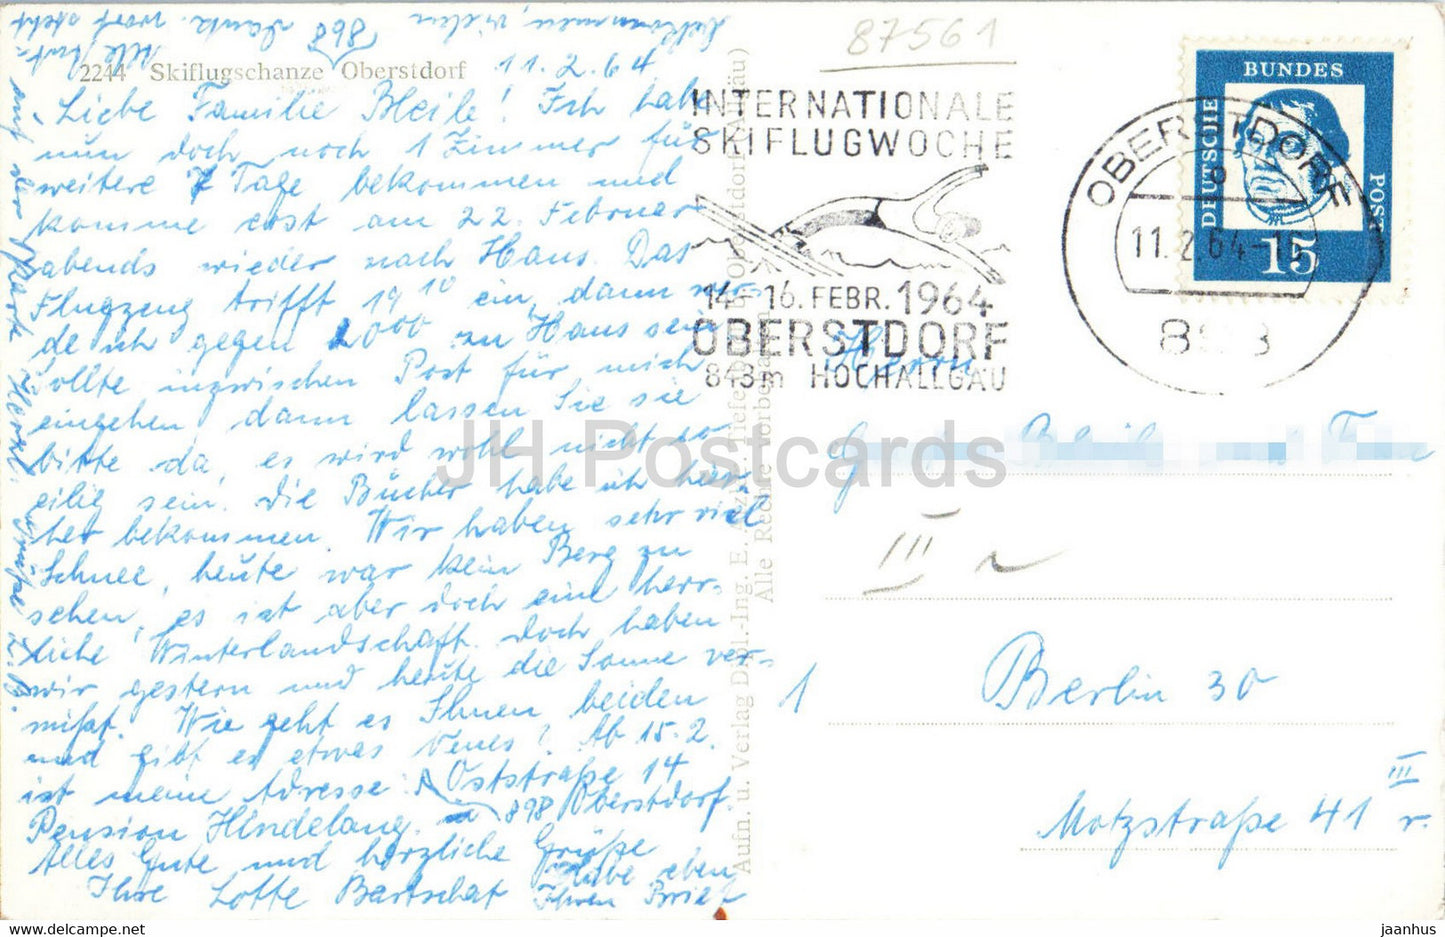 bekommen, vielen
Dank.
2244 Skiflugschanze Oberstdorf
11.2.64
Liebe Familie Bleile! Ich habe
nun doch noch 1 Zimmer für
weitere 7 Tage bekommen und
komme erst am 22. Februar
abends wieder nach Haus. Das
Flugzeug trifft 19 10 ein, dann wer-
de ich gegen 2000 zu Haus sein
sollte inzwischen Post für mich
eingehen dann lassen Sie sie
bitte da, es wird wohl nicht so
eilig sein. Die Bücher habe ich hier-
her bekommen. Wir haben sehr viel
Schnee, heute war kein Berg zu
sehen, es ist aber doch eine herr-
liche Winterlandschaft. Doch haben
wir gestern und heute die Sonne ver-
mißt. Wie geht es Ihnen beiden
und gibt es etwas Neues? Ab 15.2.
ist meine Adresse: Oststraße 14
898 Oberstdorf.
Pension Hindelang.
Alles Gute und herzliche Grüße
Ihre Lotte Bartschat
Habe eben
Ihren Brief
auf der Karte
Aufn. u. Verlag Dipl.-Ing. E.
Alle Rechte vorbehalten
87561
INTERNATIONALE
SKIFLUGWOCHE
14.-16. FEBR. 1964
OBERSTDORF
843m HOCHALLGÄU
OBERSTDORF
11.2.64
DEUTSCHE
BUNDES
POST
15
Herrn
III
1 Berlin 30
Motzstraße 41 III r.
JH Postcards
www.hippostcard.com
jaanhus